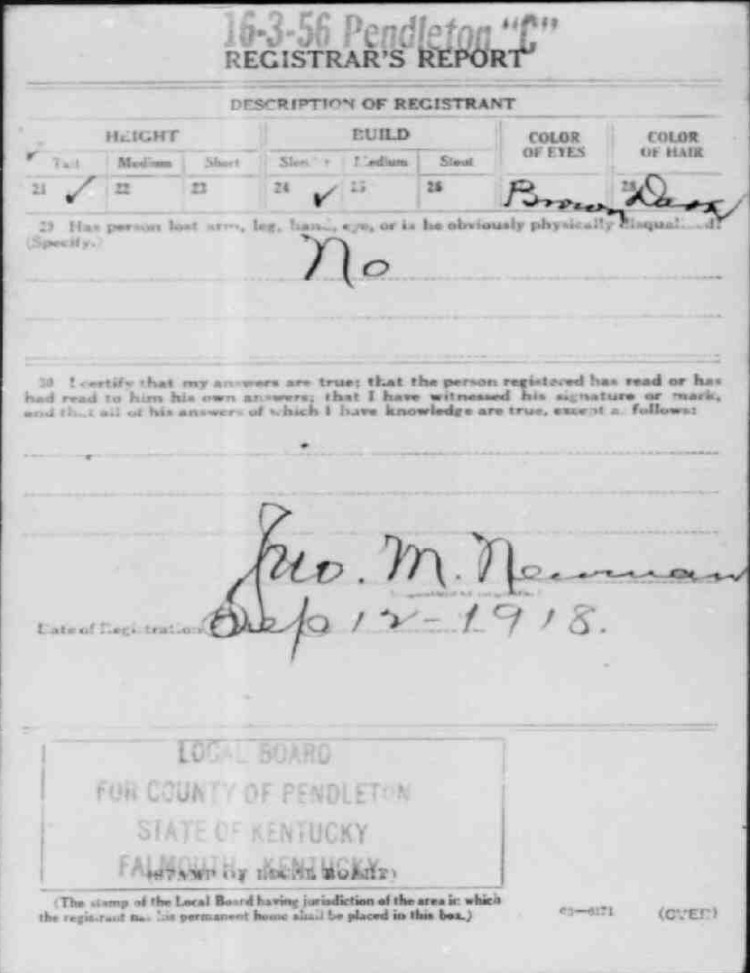 16-3-56 Pendleton "C"
REGISTRAR'S REPORT
DESCRIPTION OF REGISTRANT
HEIGHT BUILD COLOR OF EYES COLOR OF HAIR
Tall Medium Short Slender Medium Stout
21 ✓ 22 23 24 ✓ 25 26 Brown 28 Dark
29 Has person lost arm, leg, hand, eye, or is he obviously physically disqualified?
(Specify.)
No
30 I certify that my answers are true; that the person registered has read or has
had read to him his own answers; that I have witnessed his signature or mark,
and that all of his answers of which I have knowledge are true, except as follows:
Jno. M. Newman
Date of Registration Sep 12-1918.
LOCAL BOARD
FOR COUNTY OF PENDLETON
STATE OF KENTUCKY
FALMOUTH, KENTUCKY
(STAMP OF LOCAL BOARD)
(The stamp of the Local Board having jurisdiction of the area in which
the registrant has his permanent home shall be placed in this box.)
03—6171 (OVER)